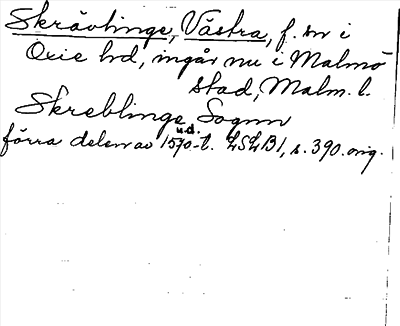 Skrävlinge, Västra, f. sn i
Oxie hd, ingår nu i Malmö
stad, Malm. l.
Skreblinge Sognn
u.d.
förra delen av 1570-t. LSLB1, s. 390. orig.